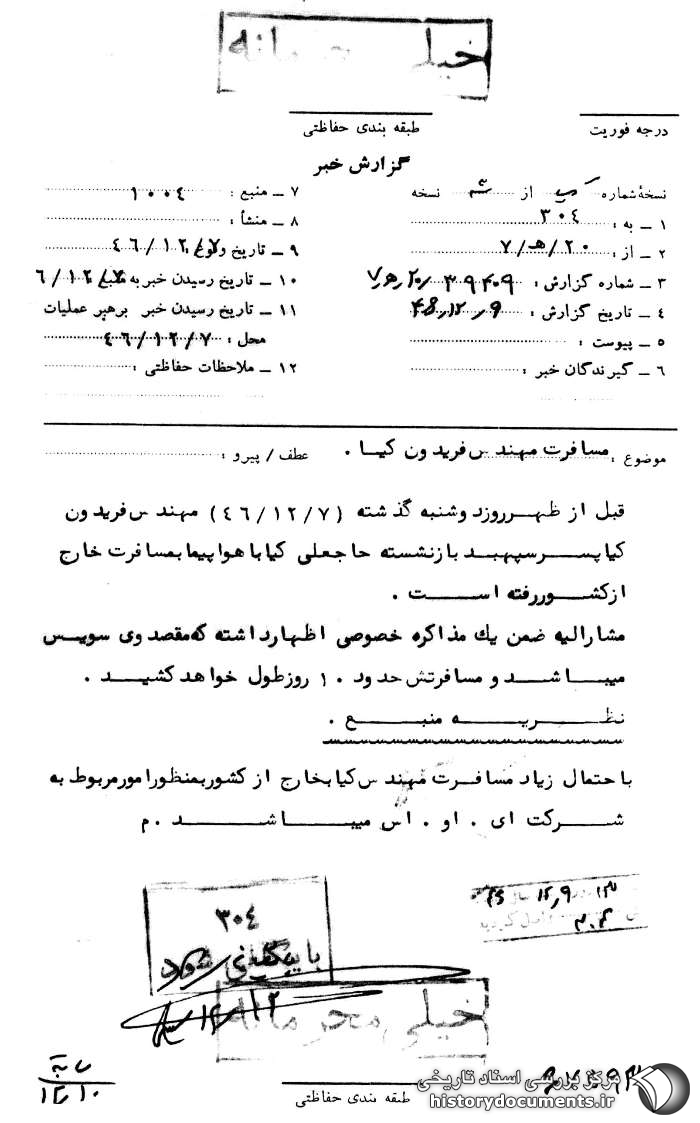 خیلی محرمانه
درجه فوریت
طبقه بندی حفاظتی
گزارش خبر
نسخهٔ شماره از نسخه
۱ ــ به : ۳۰۴
۲ ــ از : ۲۰/هـ/۷
۳ ــ شماره گزارش : ۳۹۴۰۹/۲۰هـ۷
۴ ــ تاریخ گزارش : ۴۶،۱۲،۹
۵ ــ پیوست :
۶ ــ گیرندگان خبر :
۷ ــ منبع : ۱۰۰۴
۸ ــ منشأ :
۹ ــ تاریخ وقوع : ۴۶/۱۲/۷
۱۰ ــ تاریخ رسیدن خبر به منبع ۶/۱۲/۷
۱۱ ــ تاریخ رسیدن خبر برهبر عملیات
محل : ۴۶/۱۲/۷
۱۲ ــ ملاحظات حفاظتی :
موضوع : مسافرت مهندس فریدون کیا .
عطف / پیرو :
قبل از ظهر روز دوشنبه گذشته (۴۶/۱۲/۷) مهندس فریدون
کیا پسر سپهبد بازنشسته حاجعلی کیا با هواپیما بمسافرت خارج
از کشور رفته است .
مشارالیه ضمن یك مذاکره خصوصی اظهار داشته که مقصد وی سویس
میباشد و مسافرتش حدود ۱۰ روز طول خواهد کشید .
نظریه منبع .
با احتمال زیاد مسافرت مهندس کیا بخارج از کشور بمنظور امور مربوط به
شرکت ای . او . اس میباشد . م
۳۰۴
بایگانی شود
خیلی محرمانه
طبقه بندی حفاظتی
مرکز بررسی اسناد تاریخی
historydocuments.ir